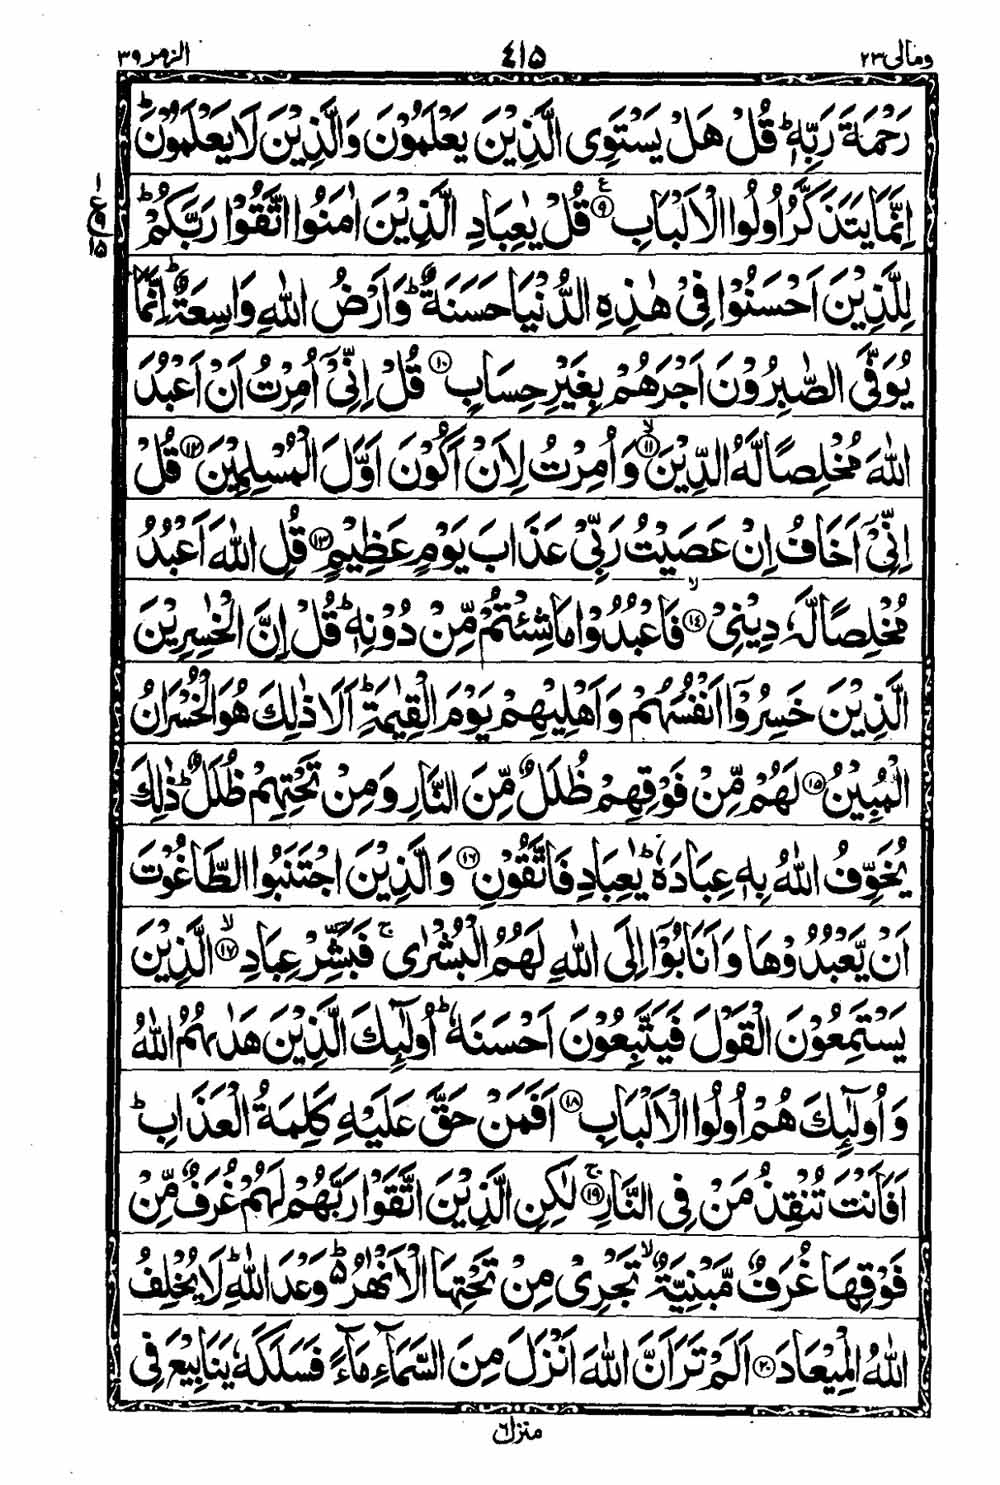 ومالی ۲۳
۴۱۵
الزمر ۳۹
رَحْمَةَ رَبِّهٖ ؕ قُلْ هَلْ يَسْتَوِى الَّذِيْنَ يَعْلَمُوْنَ وَالَّذِيْنَ لَا يَعْلَمُوْنَ ؕ
اِنَّمَا يَتَذَكَّرُ اُولُوا الْاَلْبَابِ ۹ قُلْ يٰعِبَادِ الَّذِيْنَ اٰمَنُوا اتَّقُوْا رَبَّكُمْ ؕ
ع
۱
۹
۱۵
لِلَّذِيْنَ اَحْسَنُوْا فِىْ هٰذِهِ الدُّنْيَا حَسَنَةٌ ؕ وَاَرْضُ اللّٰهِ وَاسِعَةٌ ؕ اِنَّمَا
يُوَفَّى الصّٰبِرُوْنَ اَجْرَهُمْ بِغَيْرِ حِسَابٍ ۱۰ قُلْ اِنِّىْۤ اُمِرْتُ اَنْ اَعْبُدَ
اللّٰهَ مُخْلِصًا لَّهُ الدِّيْنَ ۱۱ۙ وَاُمِرْتُ لِاَنْ اَكُوْنَ اَوَّلَ الْمُسْلِمِيْنَ ۱۲ قُلْ
اِنِّىْۤ اَخَافُ اِنْ عَصَيْتُ رَبِّىْ عَذَابَ يَوْمٍ عَظِيْمٍ ۱۳ قُلِ اللّٰهَ اَعْبُدُ
مُخْلِصًا لَّهٗ دِيْنِىْ ۱۴ۙ فَاعْبُدُوْا مَا شِئْتُمْ مِّنْ دُوْنِهٖ ؕ قُلْ اِنَّ الْخٰسِرِيْنَ
الَّذِيْنَ خَسِرُوْۤا اَنْفُسَهُمْ وَاَهْلِيْهِمْ يَوْمَ الْقِيٰمَةِ ؕ اَلَا ذٰلِكَ هُوَ الْخُسْرَانُ
الْمُبِيْنُ ۱۵ لَهُمْ مِّنْ فَوْقِهِمْ ظُلَلٌ مِّنَ النَّارِ وَمِنْ تَحْتِهِمْ ظُلَلٌ ؕ ذٰلِكَ
يُخَوِّفُ اللّٰهُ بِهٖ عِبَادَهٗ ؕ يٰعِبَادِ فَاتَّقُوْنِ ۱۶ وَالَّذِيْنَ اجْتَنَبُوا الطَّاغُوْتَ
اَنْ يَّعْبُدُوْهَا وَاَنَابُوْۤا اِلَى اللّٰهِ لَهُمُ الْبُشْرٰى ۚ فَبَشِّرْ عِبَادِ ۱۷ۙ الَّذِيْنَ
يَسْتَمِعُوْنَ الْقَوْلَ فَيَتَّبِعُوْنَ اَحْسَنَهٗ ؕ اُولٰٓئِكَ الَّذِيْنَ هَدٰىهُمُ اللّٰهُ
وَاُولٰٓئِكَ هُمْ اُولُوا الْاَلْبَابِ ۱۸ اَفَمَنْ حَقَّ عَلَيْهِ كَلِمَةُ الْعَذَابِ ؕ
اَفَاَنْتَ تُنْقِذُ مَنْ فِى النَّارِ ۱۹ۚ لٰكِنِ الَّذِيْنَ اتَّقَوْا رَبَّهُمْ لَهُمْ غُرَفٌ مِّنْ
فَوْقِهَا غُرَفٌ مَّبْنِيَّةٌ ۙ تَجْرِىْ مِنْ تَحْتِهَا الْاَنْهٰرُ ۵ؕ وَعْدَ اللّٰهِ ؕ لَا يُخْلِفُ
اللّٰهُ الْمِيْعَادَ ۲۰ اَلَمْ تَرَ اَنَّ اللّٰهَ اَنْزَلَ مِنَ السَّمَآءِ مَآءً فَسَلَكَهٗ يَنَابِيْعَ فِى
منزل ۶